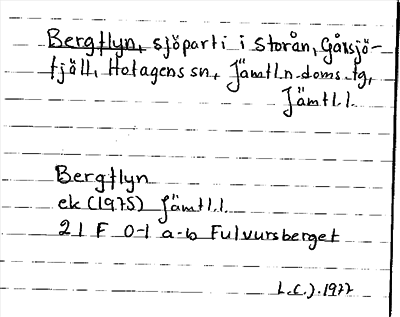 Bergflyn, sjöparti i Storån, Gåxsjö-
fjäll, Hotagens sn, Jämtl.n.doms.tg,
Jämtl.l.
Bergflyn
ek (1975) Jämtl.l.
21 F 0-1 a-b Fulvursberget
L.C.J. 1977